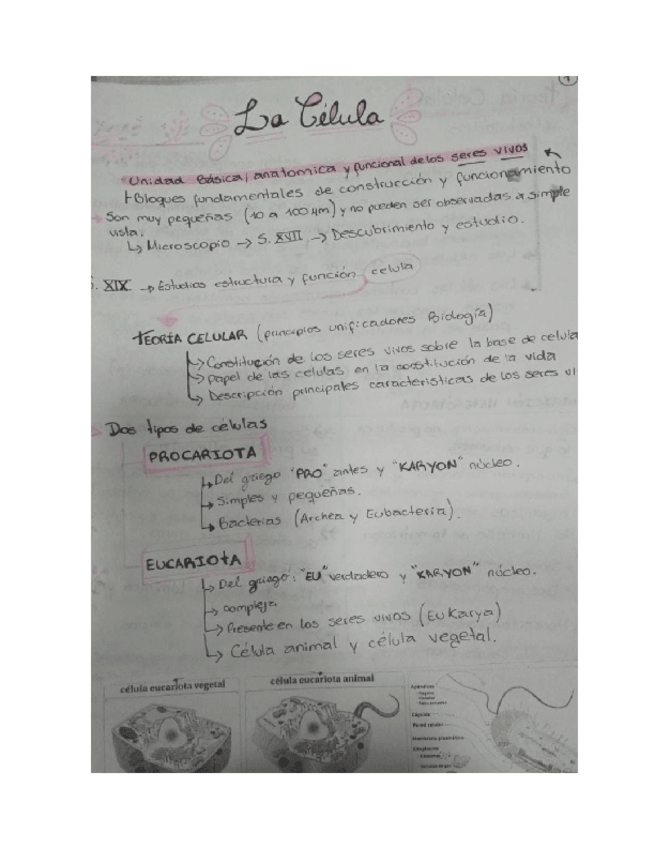 1
La Célula
Unidad Básica, anatomica y funcional de los seres vivos
Bloques fundamentales de construcción y funcionamiento
Son muy pequeñas (10 a 100 µm) y no pueden ser observadas a simple
vista.
Microscopio → S. XVII → Descubrimiento y estudio.
S. XIX → Estudios estructura y función celula
TEORÍA CELULAR (principios unificadores Biología)
Constitución de los seres vivos sobre la base de celula
papel de las celulas en la constitución de la vida
Descripción principales caracteristicas de los seres vi
Dos tipos de células
PROCARIOTA
Del griego "PRO" antes y "KARYON" núcleo.
Simples y pequeñas.
Bacterias (Archea y Eubacteria).
EUCARIOTA
Del griego: "EU" verdadero y "KARYON" núcleo.
compleja
Presente en los seres vivos (Eukarya)
Célula animal y célula vegetal.
célula eucariota vegetal
célula eucariota animal
Cápsula
Pared celular
Membrana plasmática
Citoplasma